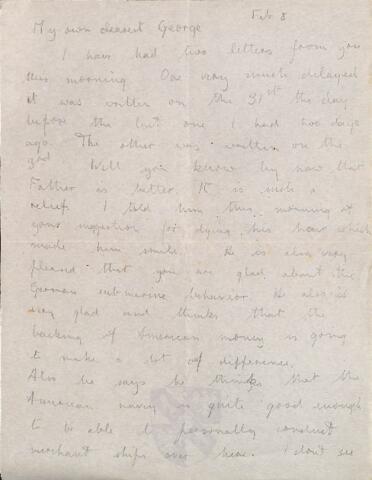 Feb 8
My own dearest George
I have had two letters from you
this morning. One very much delayed
it was written on the 31st the day
before the last one I had two days
ago. The other was written on the
3rd. Well you know by now that
Father is better. It is such a
relief. I told him this morning of
your suggestion for dying his hair which
made him smile. He is also very
pleased that you are glad about the
German submarine behavior. He also is
very glad and thinks that the
backing of American money is going
to make a lot of difference.
Also he says he thinks that the
American navy is quite good enough
to be able to personally conduct
merchant ships over here. I dont see